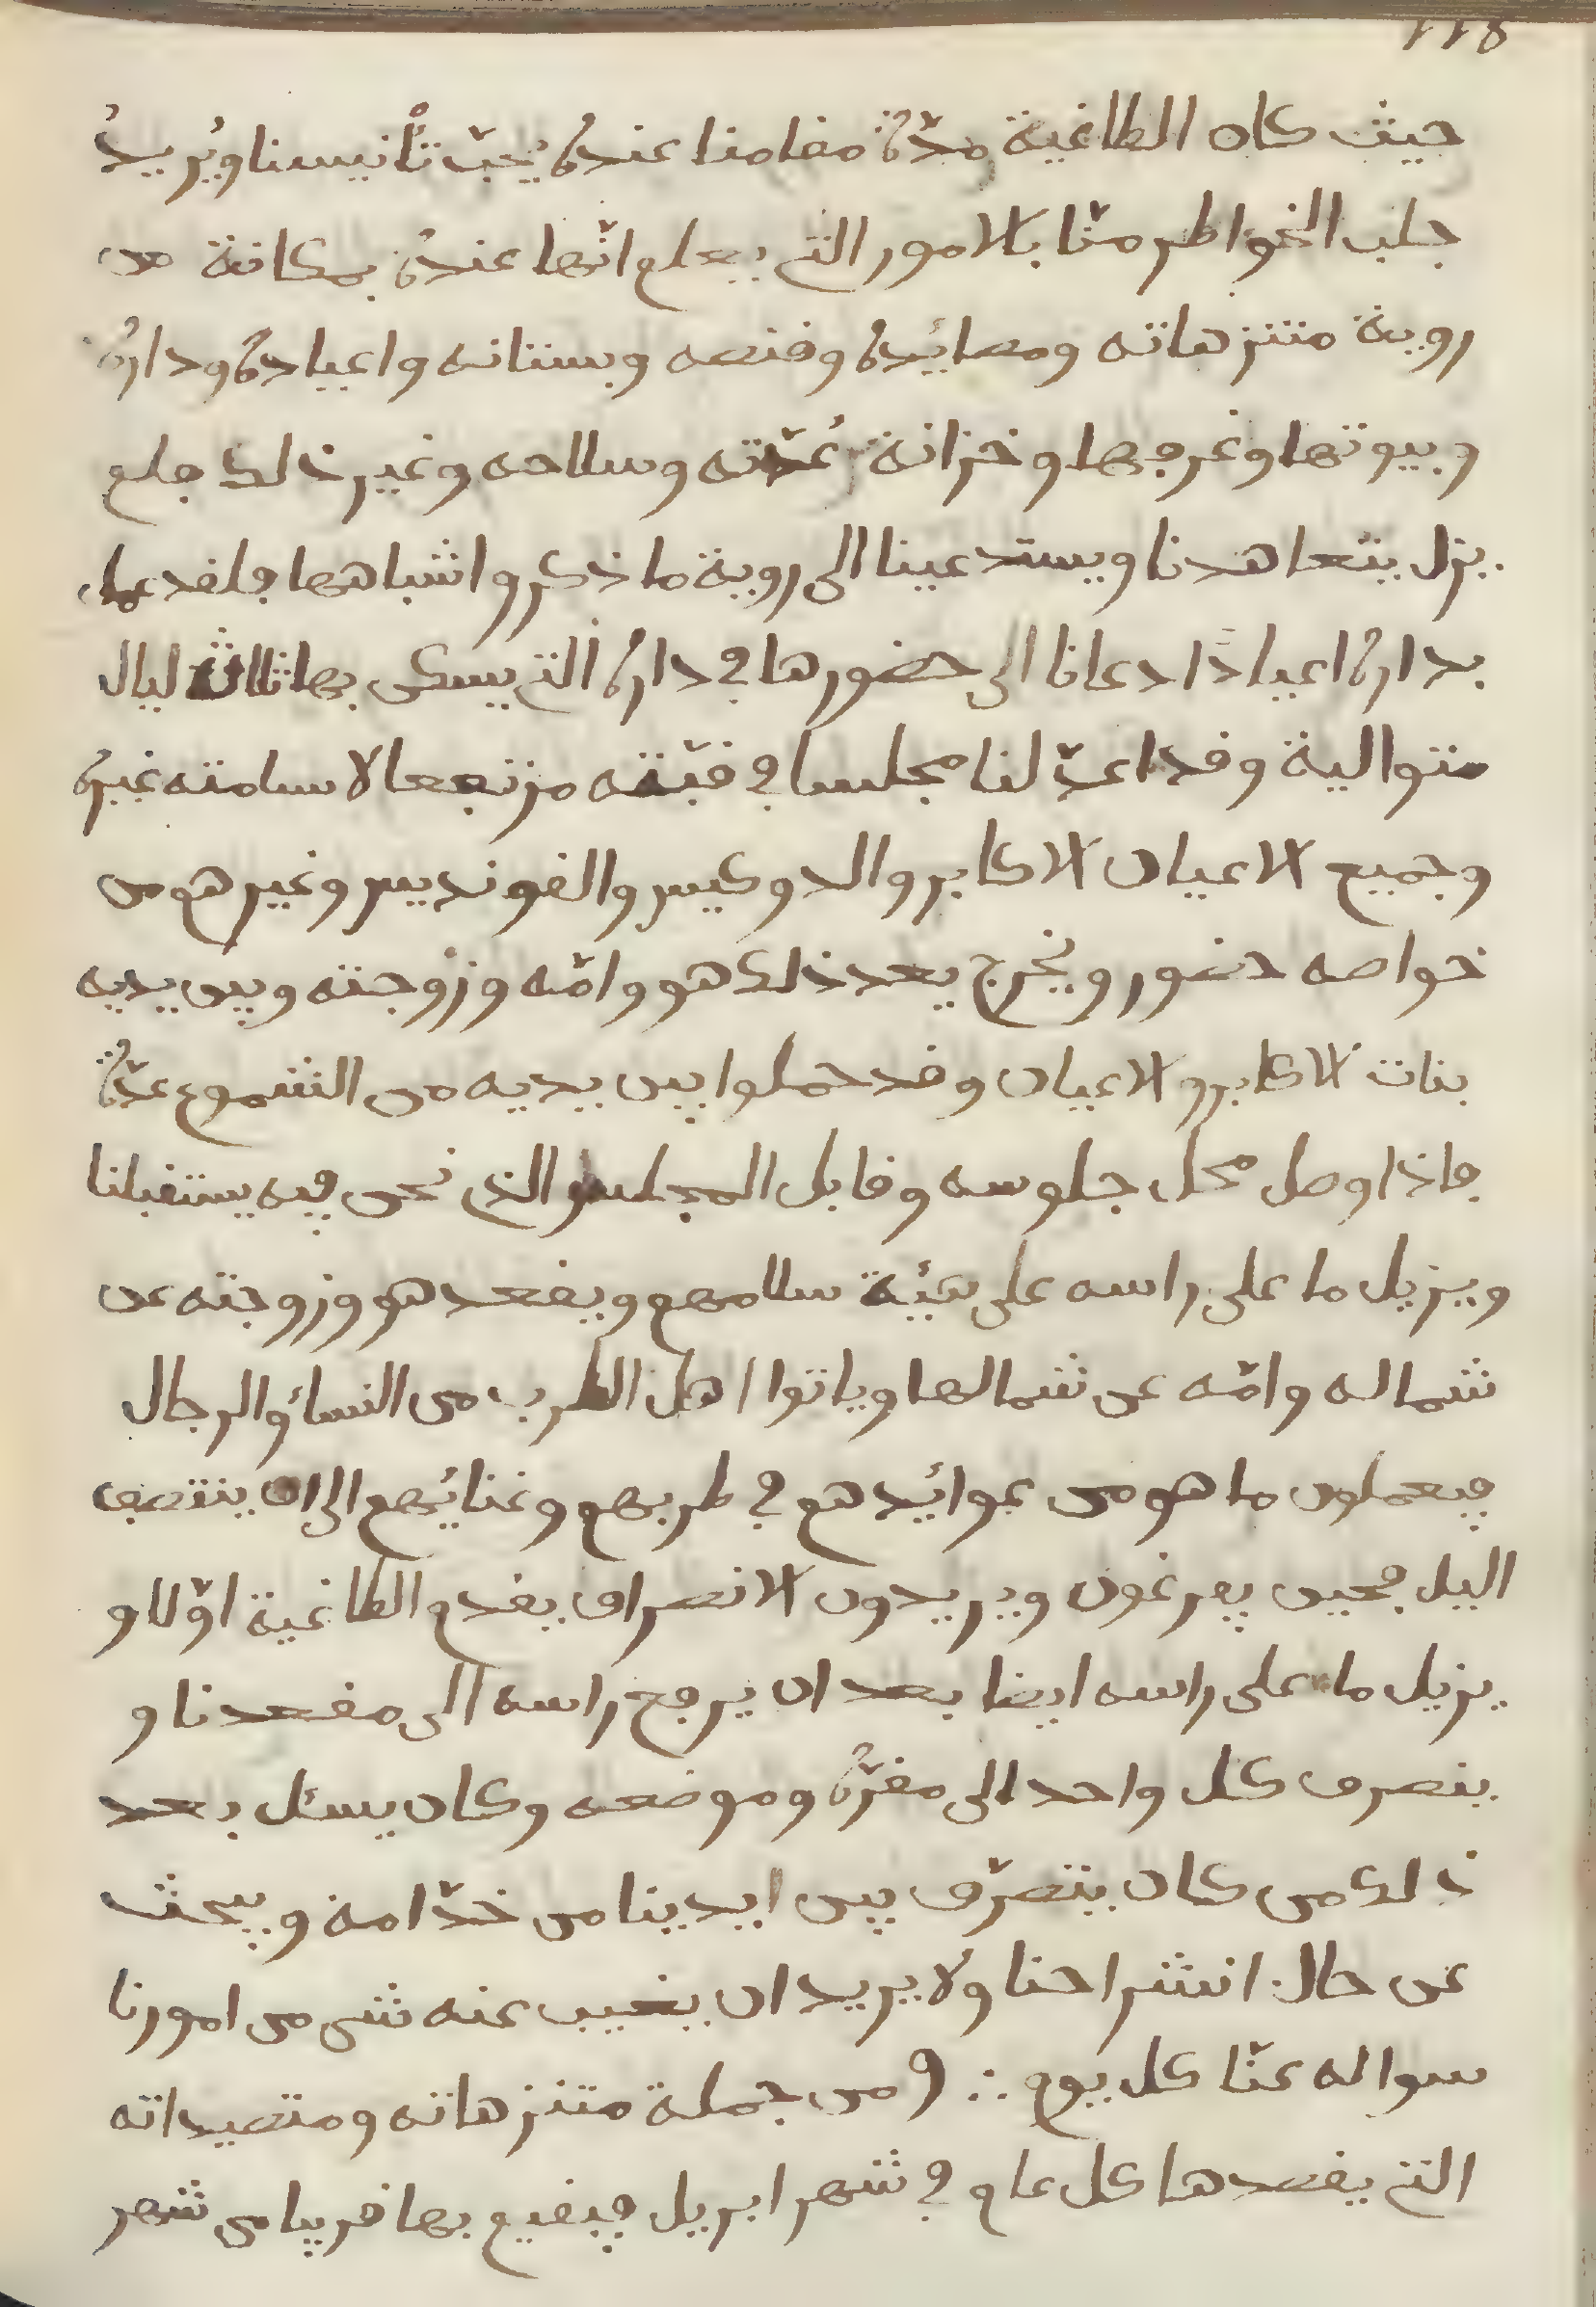 118
حيث كان الطاغية مدّة مقامنا عنده يُحبّ تأنيسنا ويُريدُ
جلب الخواطر منّا بالامور التي يعلم انّها عنده بمكانة من
روية متنزهاته ومصائيده وقنصه وبستانه واعياده وداره
وبيوتها وغرفها وخزانة عُدّته وسلاحه وغير ذلك فلم
يزل يتعاهدنا ويستدعينا الى روية ما ذكر واشباهها فلقد عمل
بداره اعيادًا دعانا الى حضورها في داره التي يسكن بها ثلاثة ليال
متوالية وقد اعدّ لنا مجلسا في قبّته مرتفعا لا سامته غيره
وجميع الاعيان الاكابر والدوكيس والقونديس وغيرهم من
خواصه حضور ويخرج بعد ذلك هو وامّه وزوجته وبين يديه
بنات الاكابر والاعيان وقد حملوا بين يديه من الشموع عدّة
فاذا وصل محل جلوسه وقابل المجلس الذي نحن فيه يستقبلنا
ويزيل ما على راسه على هيئة سلامهم ويقعد هو وزوجته عن
شماله وامّه عن شمالها وياتوا اهل الطرب من النساء والرجال
فيعملون ما هو من عوائيدهم في طربهم وغنائهم الى ان ينتصف
اليل فحين يفرغون ويريدون الانصراف يقدم الطاغية اوّلا و
يزيل ما على راسه ايضا بعد ان يرفع راسه الى مقعدنا و
ينصرف كل واحد الى مقرّه وموضعه وكان يسئل بعد
ذلك من كان يتصرّف بين ايدينا من خدّامه ويبحث
عن حال انشراحنا ولا يريد ان يغيب عنه شي من امورنا
سواله عنّا كل يوم ∴ ومن جملة متنزهاته ومتصيداته
التي يقصدها كل عام في شهر ابريل فيقيم بها قريبا من شهر